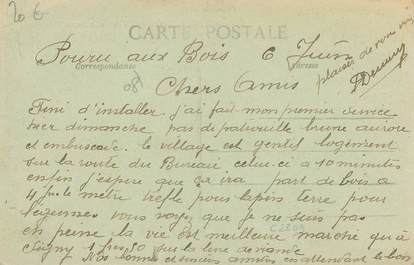 20 €
CARTE POSTALE
Pouru aux Bois 6 Juin
Correspondance Adresse
08
plaisir de vous
Chers Amis
Fini d'installer j'ai fait mon premier service
hier dimanche pas de patrouille brune aurore
et embuscade. le village est gentil logement
sur la route du Bureau celui-ci a 10 minutes
enfin j'espere que ça ira part de bois a
4 frs le mètre trefle pour lapins terre pour
légumes vous voyez que je ne suis pas
en peine la vie est meilleure marché qu'à
Signy 1 frs,50 sur la livre de viande
Nos bonnes et amitiés en attendant le bon